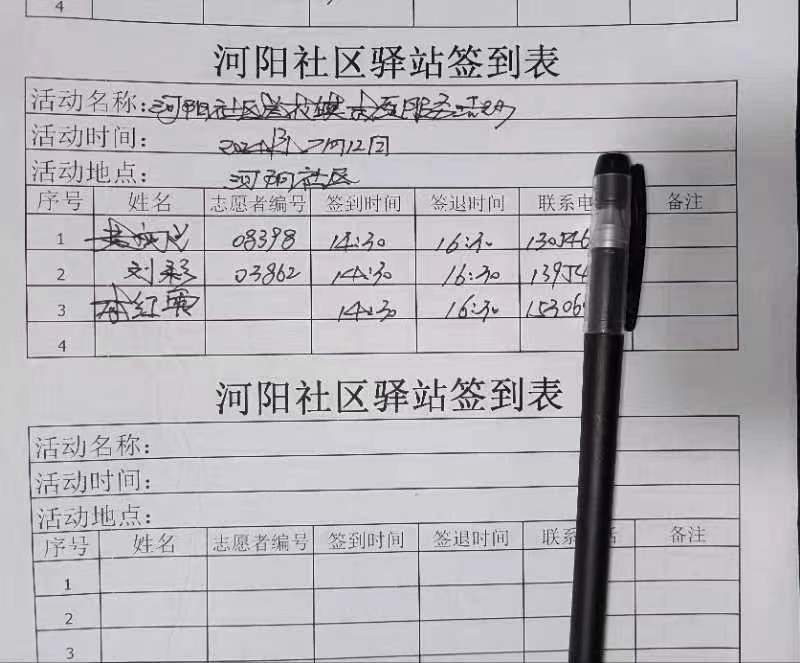 4
河阳社区驿站签到表
活动名称：河阳社区
活动时间：月12日
活动地点：河阳社区
序号 姓名 志愿者编号 签到时间 签退时间 联系电 备注
1 08398 14:30 16:30 130546
2 刘彩 03862 14:30 16:30 13954
3 红霞 14:30 16:30 15306
4
河阳社区驿站签到表
活动名称：
活动时间：
活动地点：
序号 姓名 志愿者编号 签到时间 签退时间 联系 话 备注
1
2
3